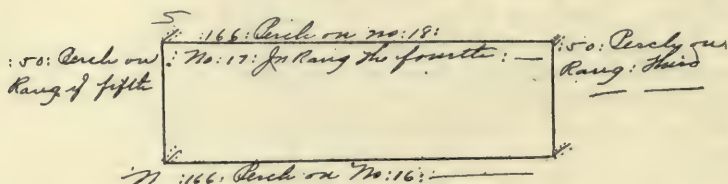 S
:166: Perch on no:18:
:50: Perch on
Rang ye fifth
: No: 17: In Rang the fourth : —
:50: Perch on
Rang: Third
N :166: Perch on No:16: —